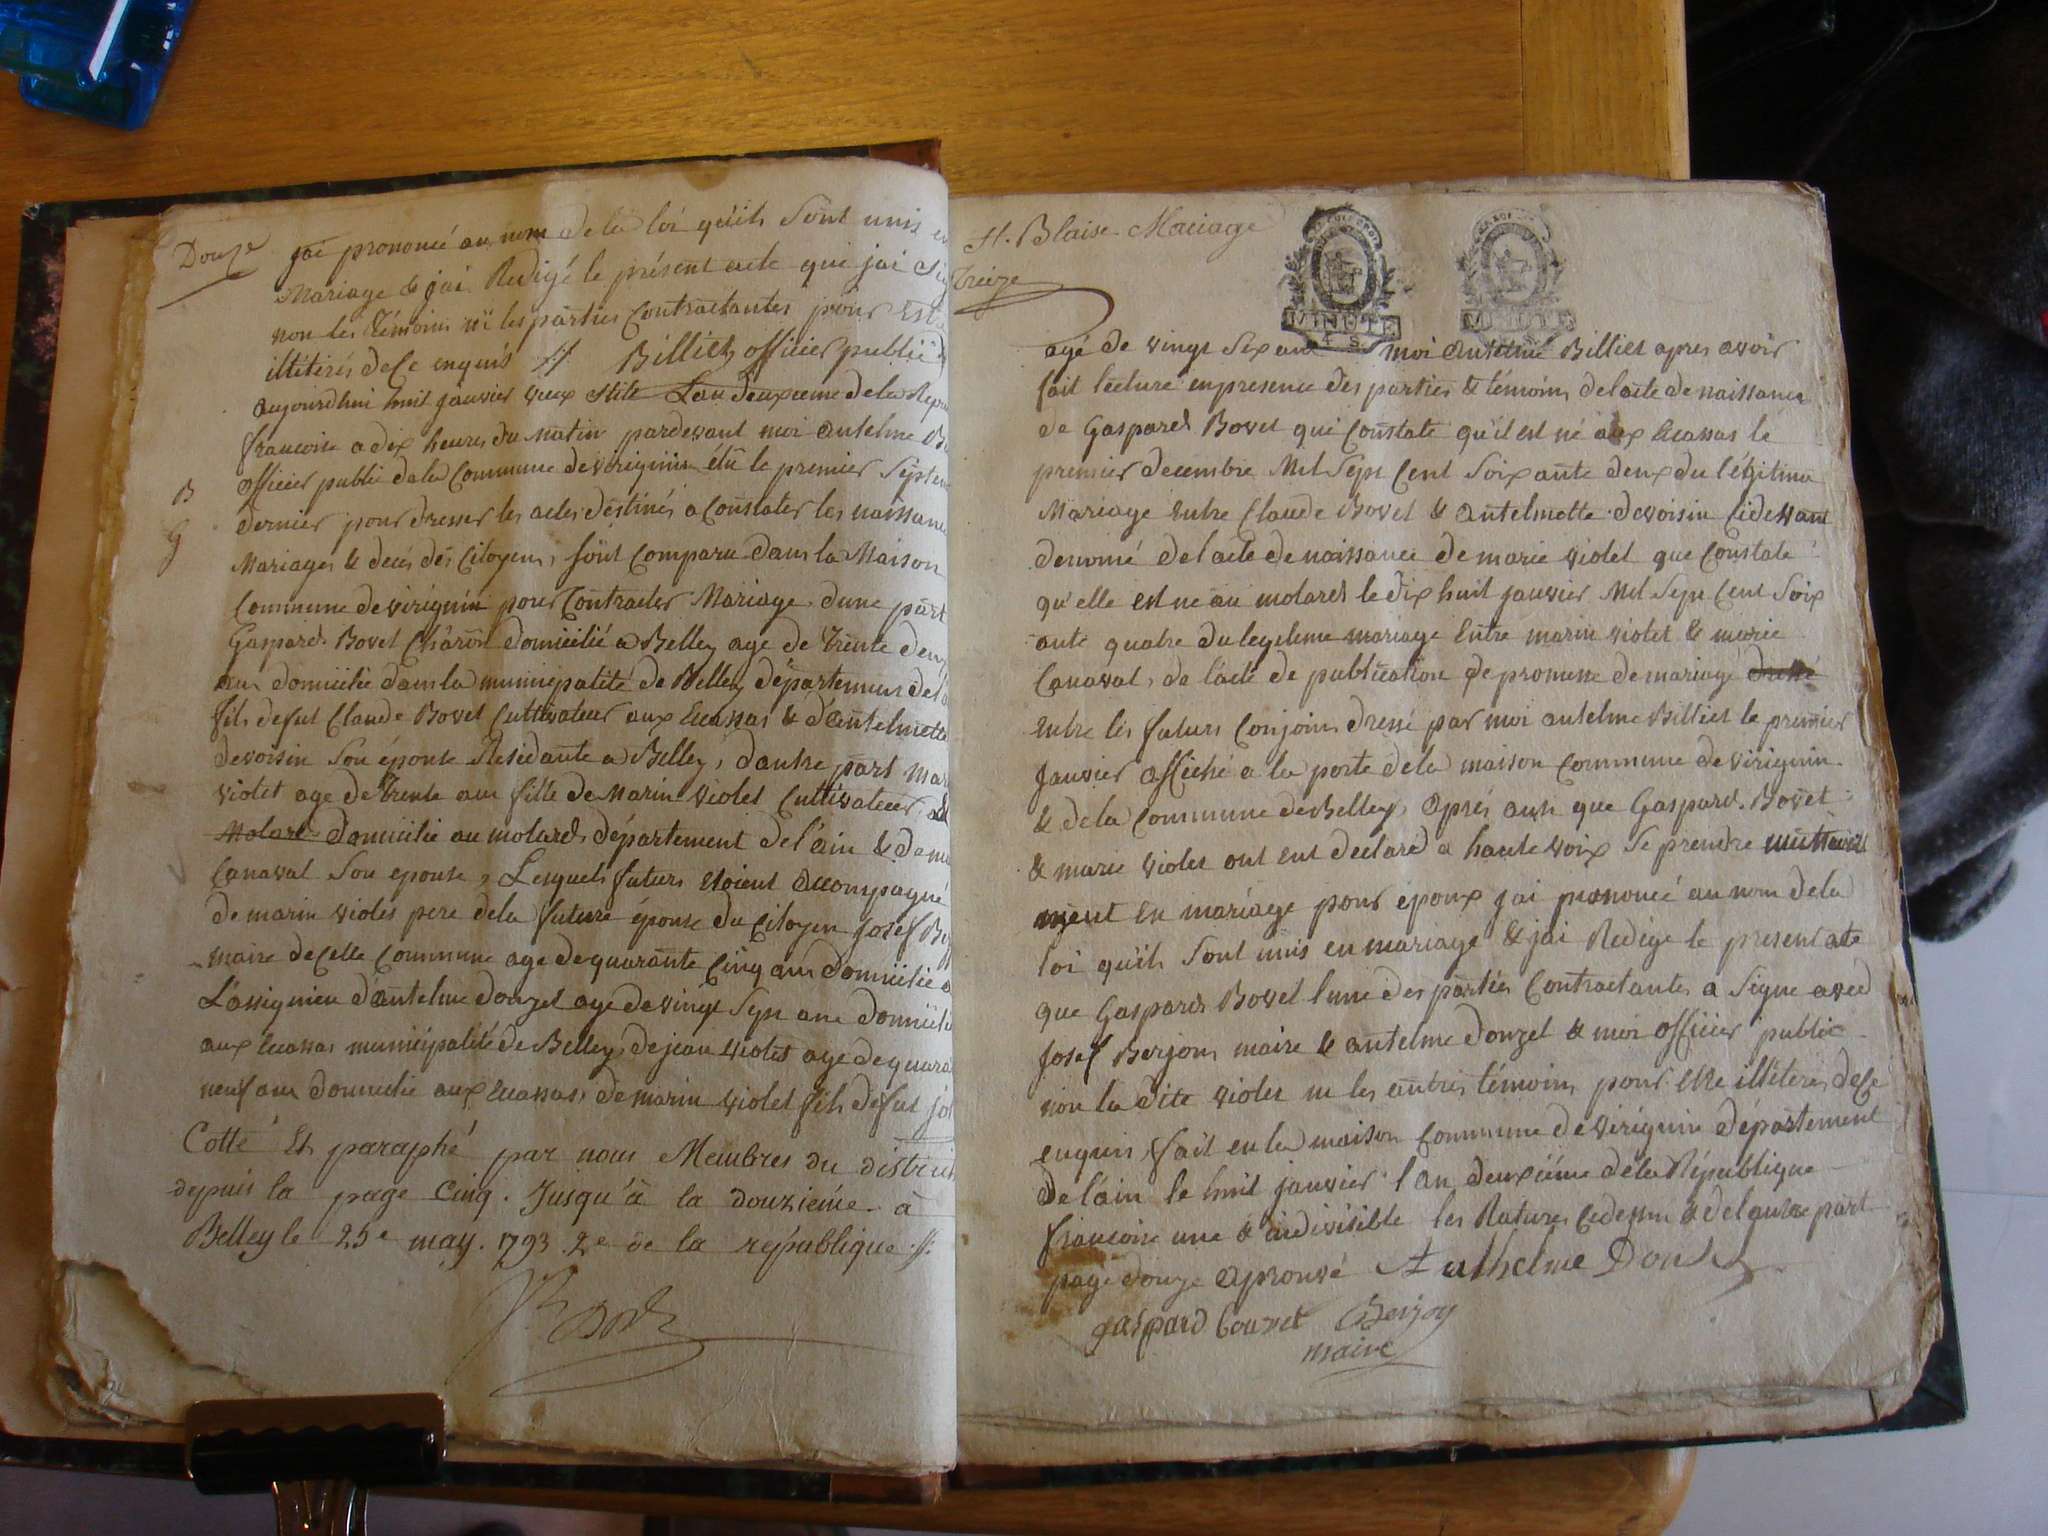 Douze
jai prononcé au nom de la loi quils sont unis en
Mariage & jai Redigé le présent acte que jai
non les témoins ni les parties Contractantes pour
illétérés de ce enquis Billiet officier public
aujourdhui huit janvier vieux stile Lan deuxieme de la
francoise a dix heures du matin pardevant moi antelme
officier public de la Commune de virignin élu le premier
B
dernier pour dresser les actes déstinés a Constater les
G
Mariages & deces des Citoyens, sont Comparu dans la Maison
Commune de virignin pour Contracter Mariage, dune part
Gaspard Bovet domicilié a Belley age de trente
ans domicilié dans la municipalité de Belley département
fils defut Claude Bovet Cultivateur aux Ecassas & dantelmette
devoisin Son éponse Residante a Belley, dautre part
violet age de trente ans fille de Marin violet Cultivateur
Molard domicilie au molard département de lain & de
Canaval Son eponse, Lesquels futurs étoient accompagné
de marin violet pere dela future éponse du Citoyen Josef
maire de Celle Commune age de quarante Cinq ans domicilie
Lassignieu dantelme donzel age de vingt Sept ans
aux Ecassas municipalité de Belley, de jean violet age de
neuf ans domicilie aux Ecassas, de marin violet fils defut
Cotté Et paraphé par nous Membres du
depuis la page Cinq. Jusqu'à la douziéme. à
Belley le 25e may. 1793. 2e de la république.
St. Blaise Mariage
Treize
MINUTE
4 S.
MINUTE
agé de vingt Six ans moi antelme Billiet apres avoir
fait lecture en presence des parties & témoins de lacte de naissance
de Gaspard Bovet qui Constate qu'il est né aux Ecassas le
premier decembre Mil Sept Cent Soixante deux du légitime
Mariage entre Claude Bovet & antelmette devoisin Cidevant
denomé de lacte de naissance de marie violet que Constate
qu'elle est ne au molard le dix huit janvier Mil Sept Cent Soix
ante quatre du legitime mariage Entre marin violet & marie
Canaval, de lacte de publication de promesse de mariage
entre les futurs Conjoins dressé par moi antelme Billiet le premier
Janvier affiché a la porte dela maison Commune de virignin
& dela Commune de Belley, aprés que Gaspard Bovet
& marie violet ont eut declaré a haute voix Se prendre mutuelle
ment en mariage pour époux jai prononcé au nom dela
loi quils Sont unis en mariage & jai Redige le present acte
que Gaspard Bovet lune des parties Contractantes a Signe avec
Josef Berjon, maire & antelme donzel & moi officier public
non la dite violet ni les autres témoins pour Etre illéteres dece
enquis, fait en la maison Commune de virignin département
de lain le huit janvier l an deuxiéme dela République
francoise une & indivisible les Ratures Cidessu & de lautre part
page douze aprouvé Anthelme
gaspard bouvet Berjon
maire